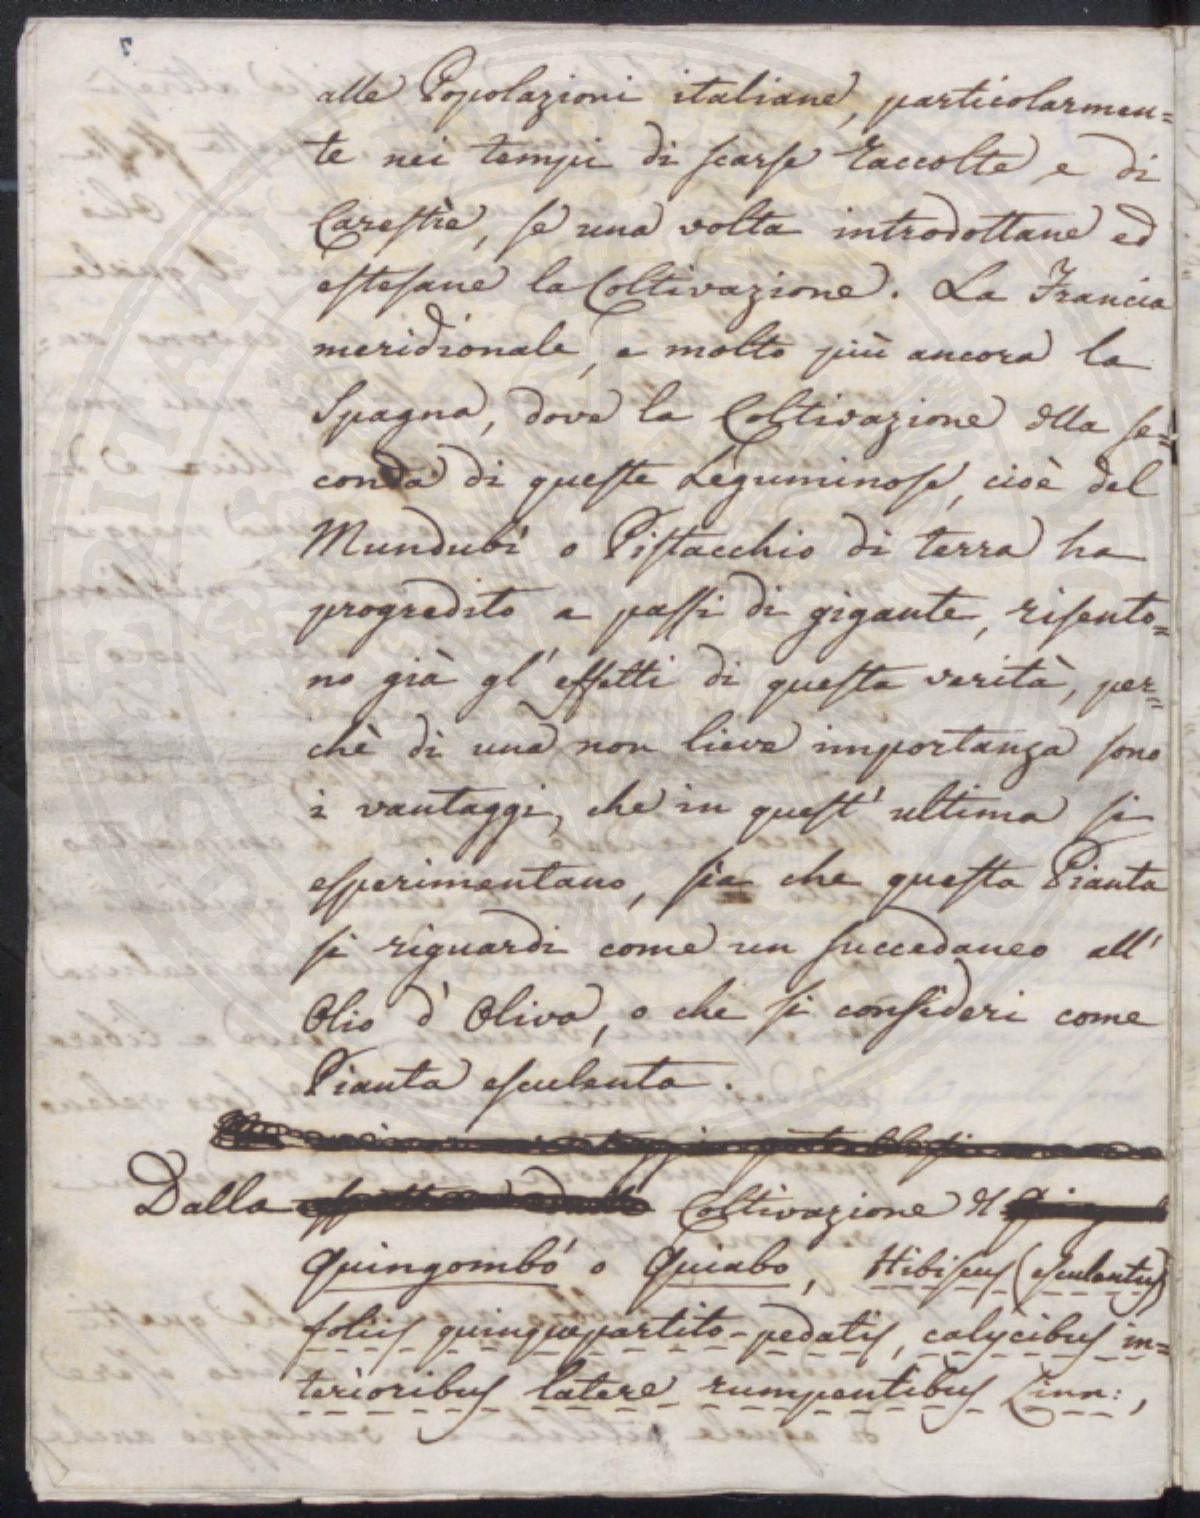 7
alle Popolazioni italiane, particolarmen=
te nei tempi di scarse Raccolte e di
Carestìe, se una volta introdottane ed
estesane la Coltivazione. La Francia
meridionale, e molto più ancora la
Spagna, dove la Coltivazione della se=
conda di queste Leguminose, cioè del
Mundubí o Pistacchio di terra ha
progredito a passi di gigante, risento=
no già gl' effetti di questa verità, per=
chè di una non lieve importanza sono
i vantaggi, che in quest' ultima si
esperimentano, sia che questa Pianta
si riguardi come un succedaneo all'
Olio d' Oliva, o che si consideri come
Pianta esculenta.
Dalla Coltivazione del
Quingombó o Quiabo, Hibiscus (esculentus)
foliis quinquepartito-pedatis, calycibus in=
terioribus latere rumpentibus Linn:,